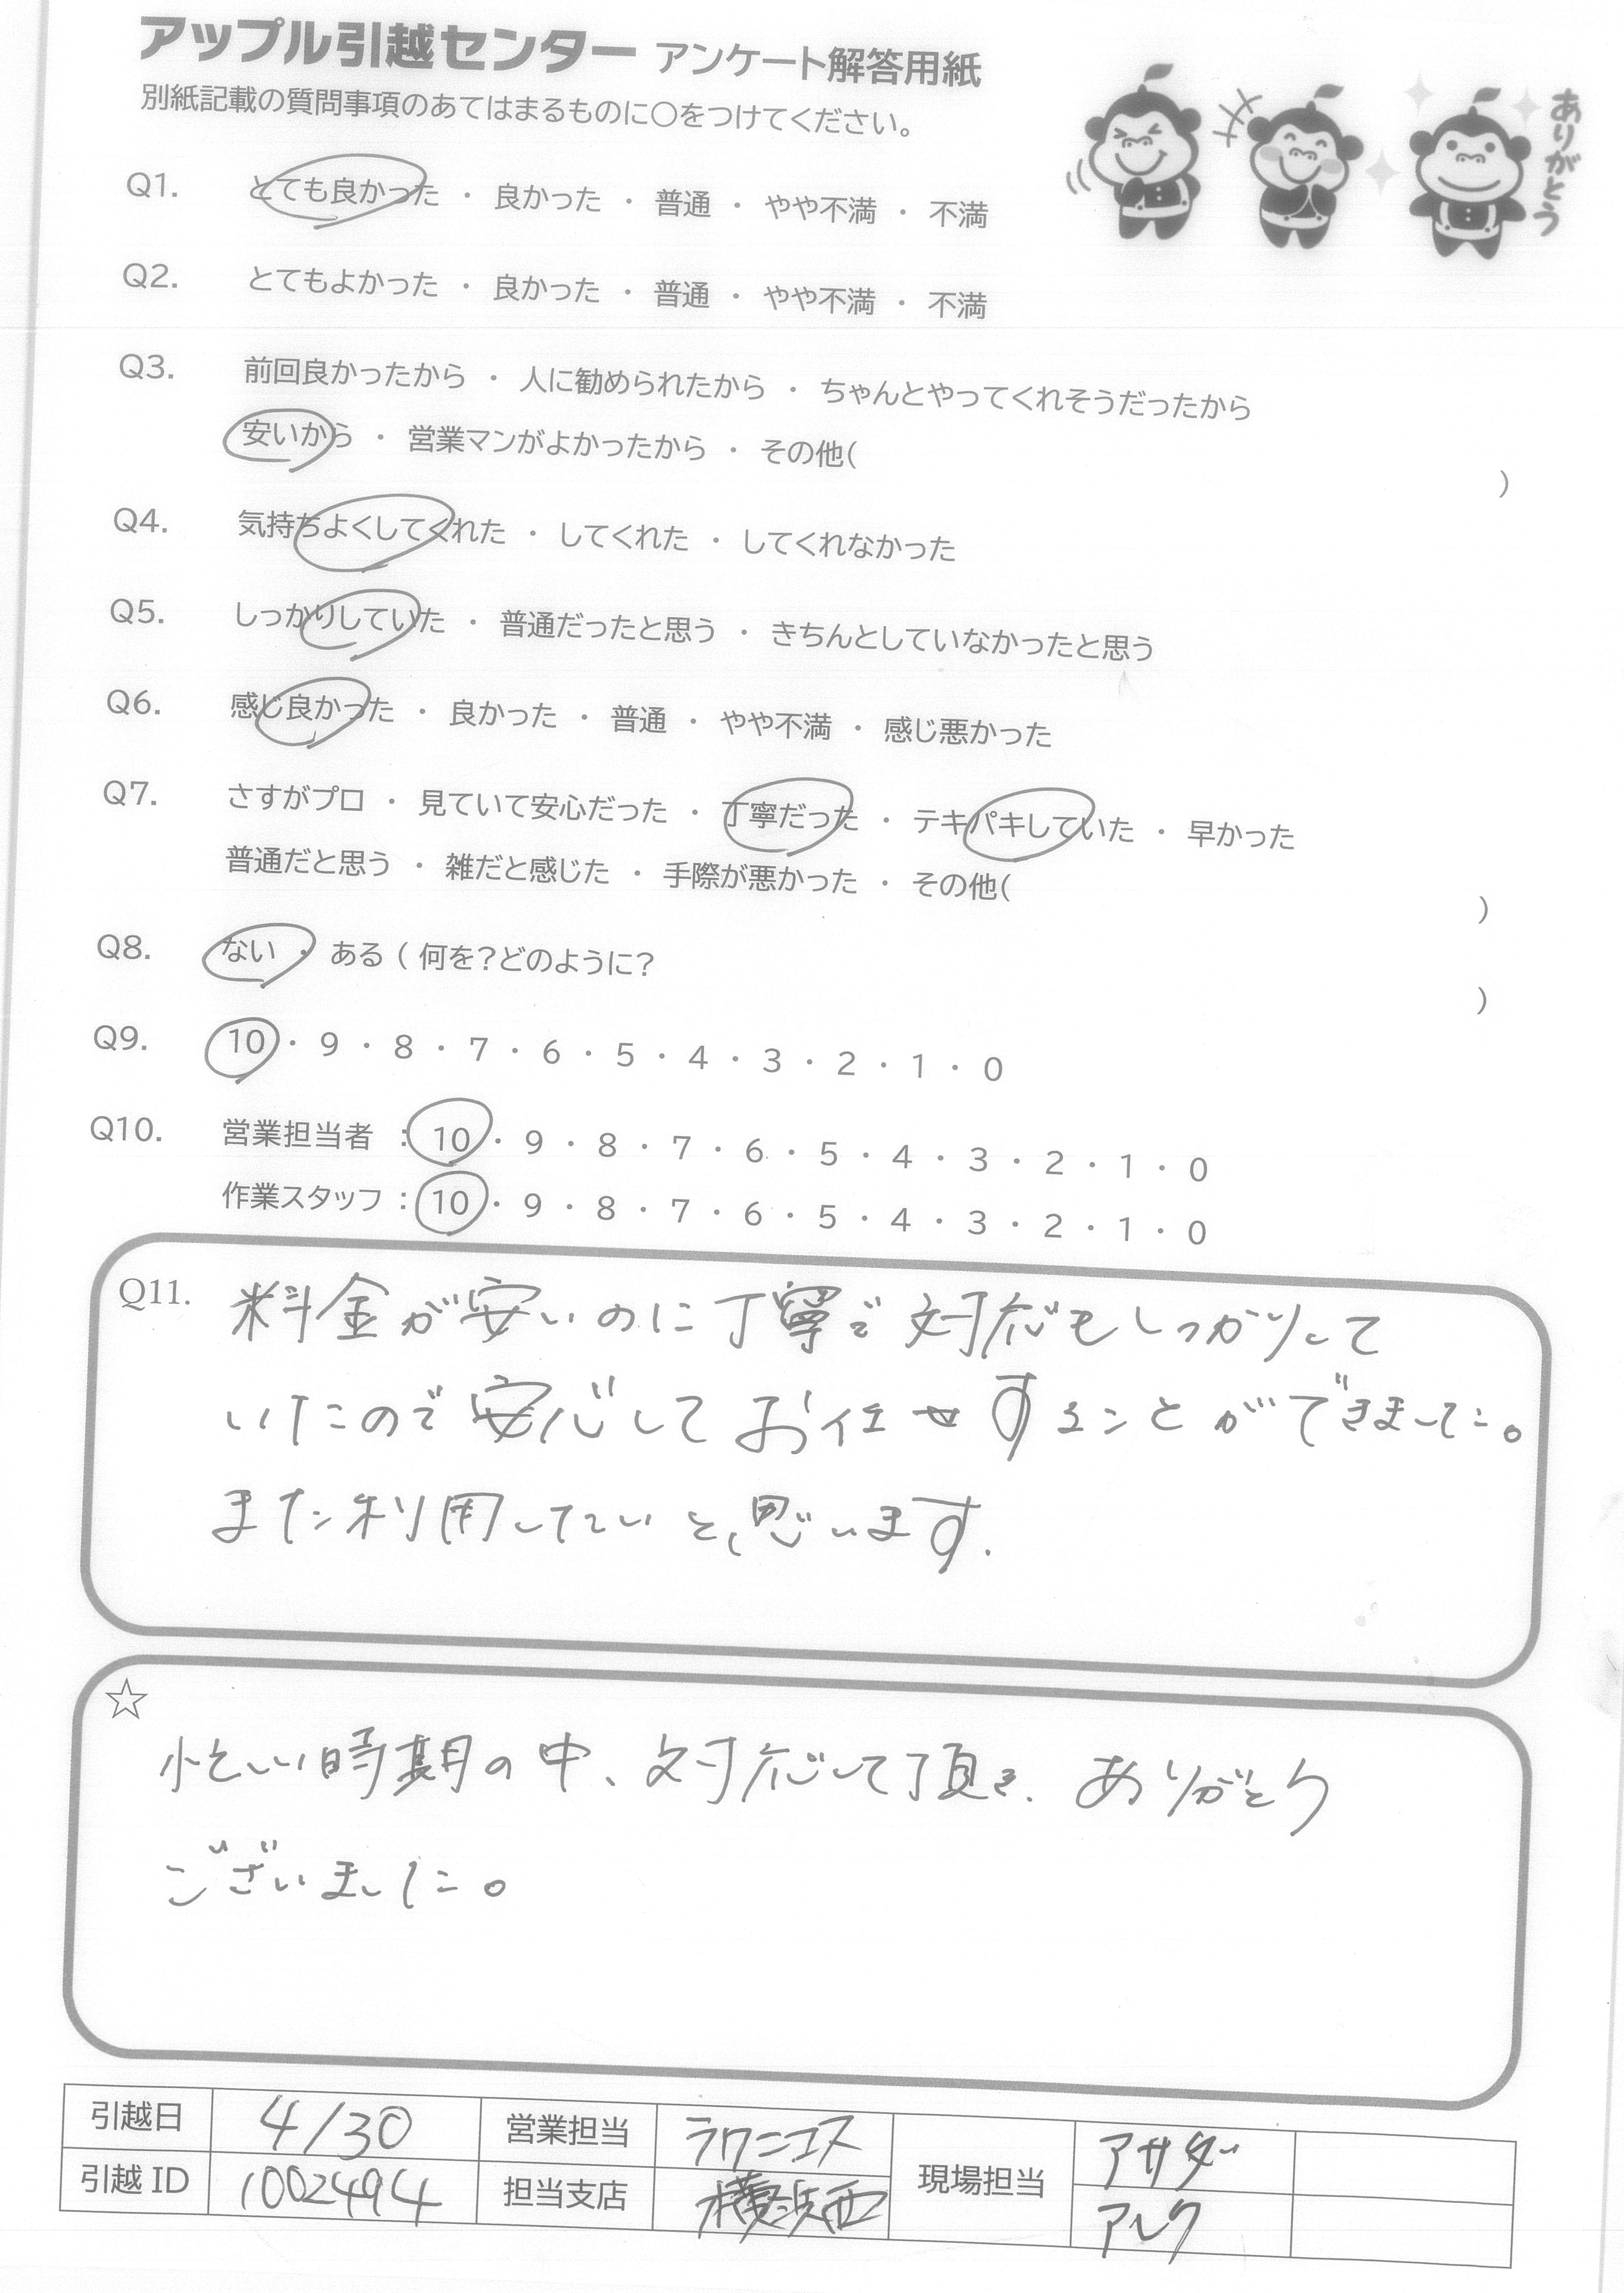 アップル引越センター アンケート解答用紙
別紙記載の質問事項のあてはまるものに〇をつけてください。
ありがとう
Q1. とても良かった ・ 良かった ・ 普通 ・ やや不満 ・ 不満
Q2. とてもよかった ・ 良かった ・ 普通 ・ やや不満 ・ 不満
Q3. 前回良かったから ・ 人に勧められたから ・ ちゃんとやってくれそうだったから
安いから ・ 営業マンがよかったから ・ その他( )
Q4. 気持ちよくしてくれた ・ してくれた ・ してくれなかった
Q5. しっかりしていた ・ 普通だったと思う ・ きちんとしていなかったと思う
Q6. 感じ良かった ・ 良かった ・ 普通 ・ やや不満 ・ 感じ悪かった
Q7. さすがプロ ・ 見ていて安心だった ・ 丁寧だった ・ テキパキしていた ・ 早かった
普通だと思う ・ 雑だと感じた ・ 手際が悪かった ・ その他( )
Q8. ない ・ ある ( 何を?どのように? )
Q9. 10 ・ 9 ・ 8 ・ 7 ・ 6 ・ 5 ・ 4 ・ 3 ・ 2 ・ 1 ・ 0
Q10. 営業担当者 : 10 ・ 9 ・ 8 ・ 7 ・ 6 ・ 5 ・ 4 ・ 3 ・ 2 ・ 1 ・ 0
作業スタッフ : 10 ・ 9 ・ 8 ・ 7 ・ 6 ・ 5 ・ 4 ・ 3 ・ 2 ・ 1 ・ 0
Q11. 料金が安いのに丁寧で対応もしっかりして
いたので安心してお任せすることができました。
また利用したいと思います.
☆
忙しい時期の中、対応して頂き、ありがとう
ございました。
引越日 4/30 営業担当 ラクニコス 現場担当 アサダ
引越 ID 1002494 担当支店 横浜西 アレク